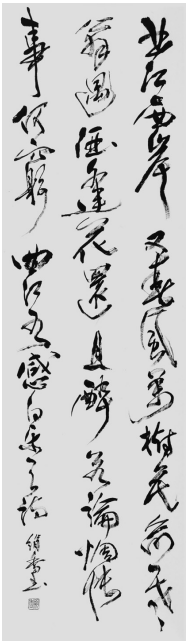 北江西岸又春風萬樹花前一
翁遇酒逢花還且醉若論惆悵
事何窮 曲江有感 白樂天詩